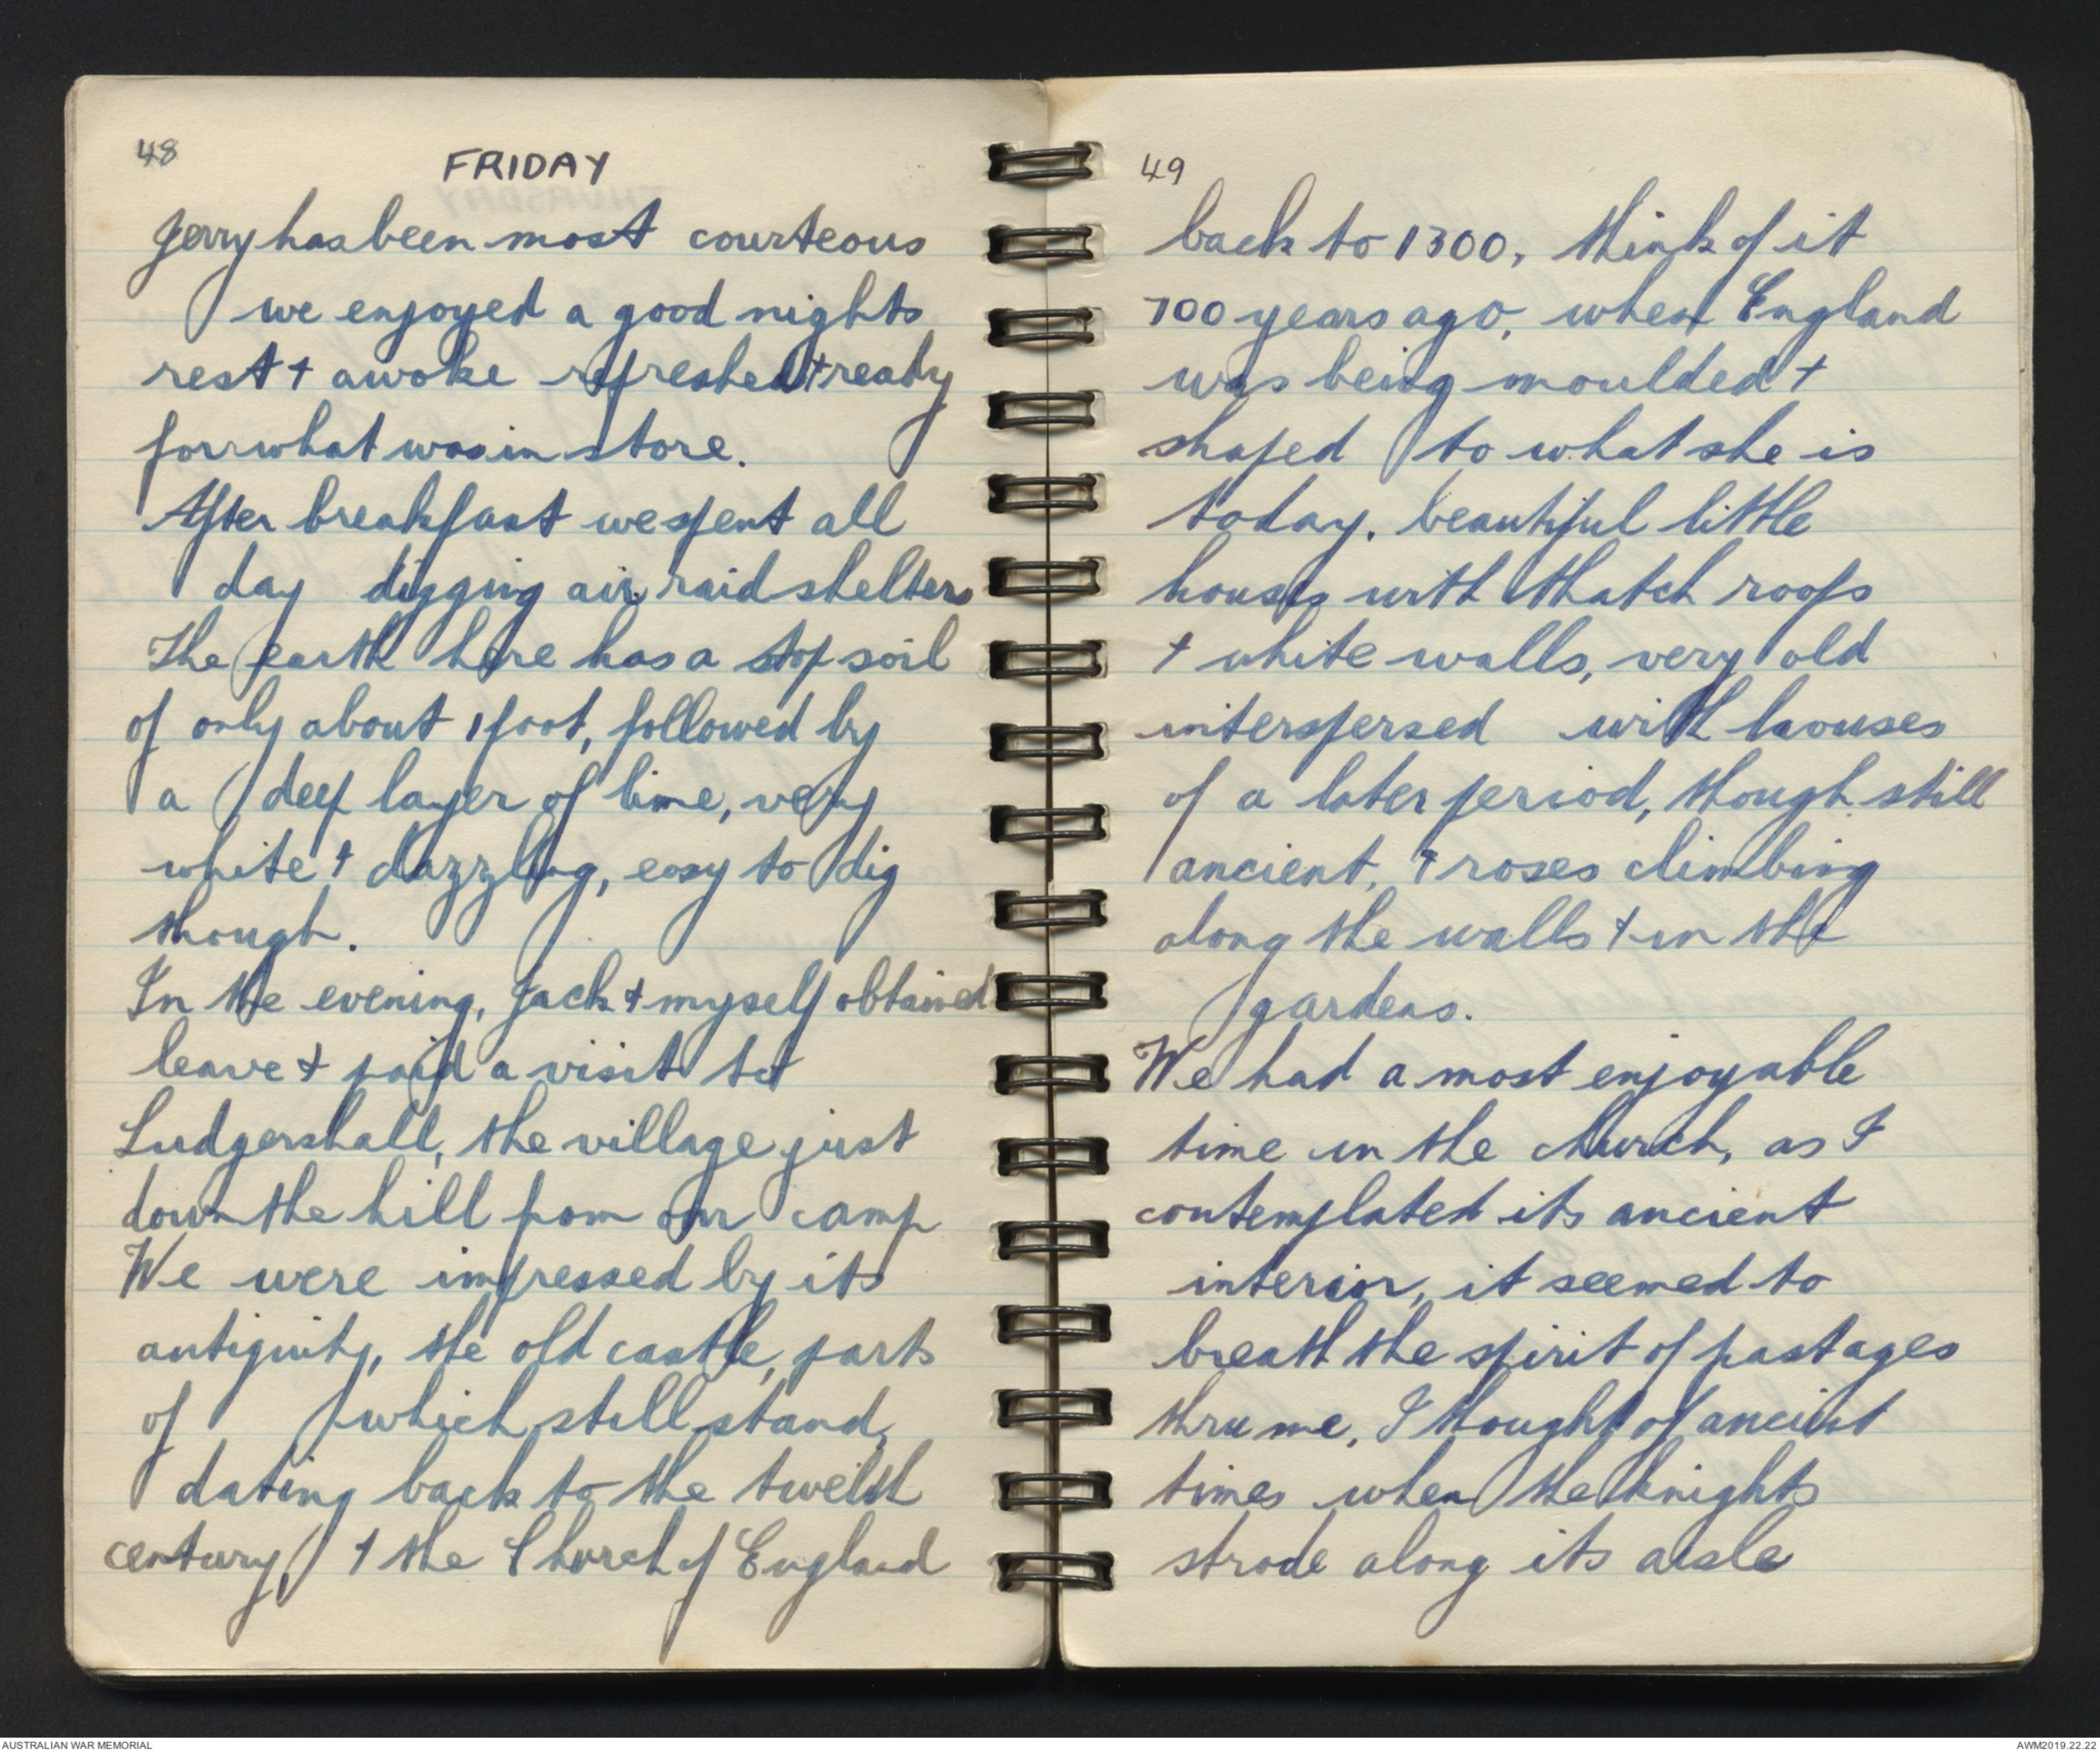 48
FRIDAY
Jerry has been most courteous
we enjoyed a good nights
rest + awoke refreshed + ready
for what was in store.
After breakfast we spent all
day digging air raid shelters
The earth here has a top soil
of only about 1 foot, followed by
a deep layer of lime, very
white + dazzling, easy to dig
though.
In the evening, Jack + myself obtained
leave + paid a visit to
Ludgershall, the village just
down the hill from our camp
We were impressed by its
antiquity, the old castle, parts
of which still stand,
dating back to the twelth
century, + the Church of England
49
back to 1300, think of it
700 years ago, when England
was being moulded +
shaped to what she is
today. beautiful little
houses with thatch roofs
+ white walls, very old
interspersed with houses
of a later period, though still
ancient, + roses climbing
along the walls + in the
gardens.
We had a most enjoyable
time in the church, as I
contemplated its ancient
interior, it seemed to
breath the spirit of past ages
thru me, I thought of ancient
times when the knights
strode along its aisle
AUSTRALIAN WAR MEMORIAL
AWM2019.22.22